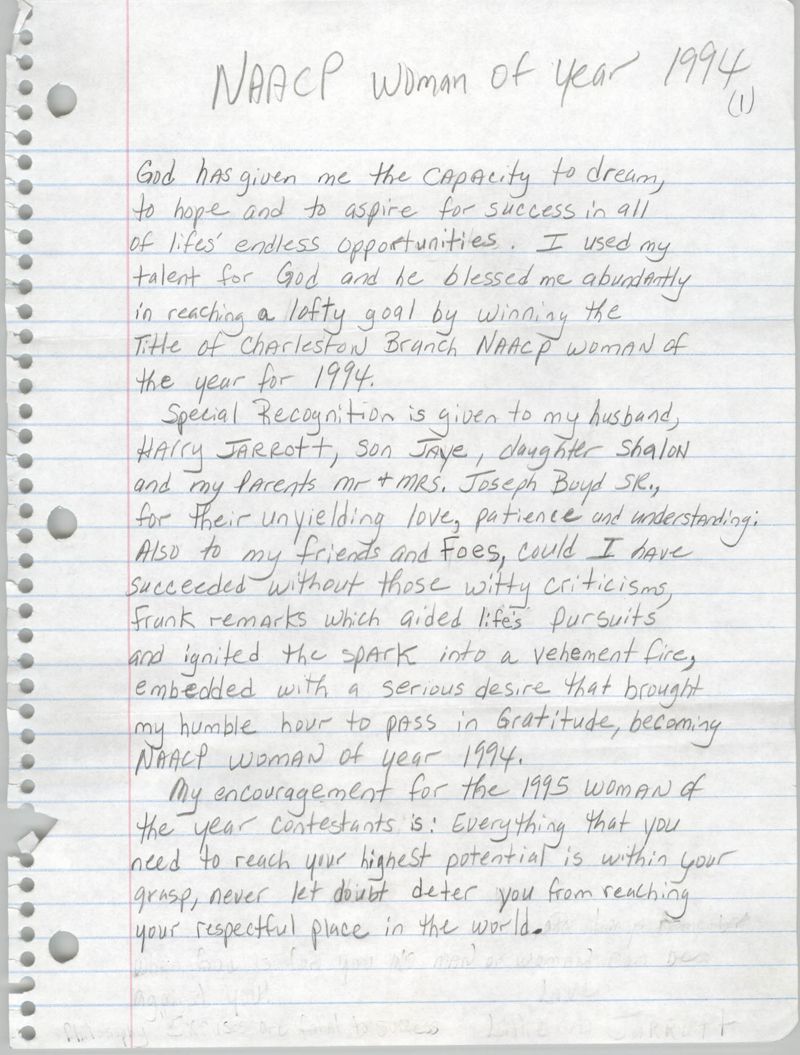 NAACP Woman of Year 1994
(1)
God has given me the capacity to dream,
to hope and to aspire for success in all
of lifes' endless opportunities. I used my
talent for God and he blessed me abundantly
in reaching a lofty goal by winning the
Title of Charleston Branch NAACP Woman of
the year for 1994.
Special Recognition is given to my husband,
Harry Jarrott, son Jaye, daughter Shalon
and my Parents Mr + Mrs. Joseph Boyd SR.,
for their unyielding love, patience and understanding.
Also to my friends and Foes, could I have
succeeded without those witty criticisms,
frank remarks which aided life's pursuits
and ignited the spark into a vehement fire,
embedded with a serious desire that brought
my humble hour to pass in Gratitude, becoming
NAACP Woman of year 1994.
My encouragement for the 1995 Woman of
the year contestants is: Everything that you
need to reach your highest potential is within your
grasp, never let doubt deter you from reaching
your respectful place in the world.